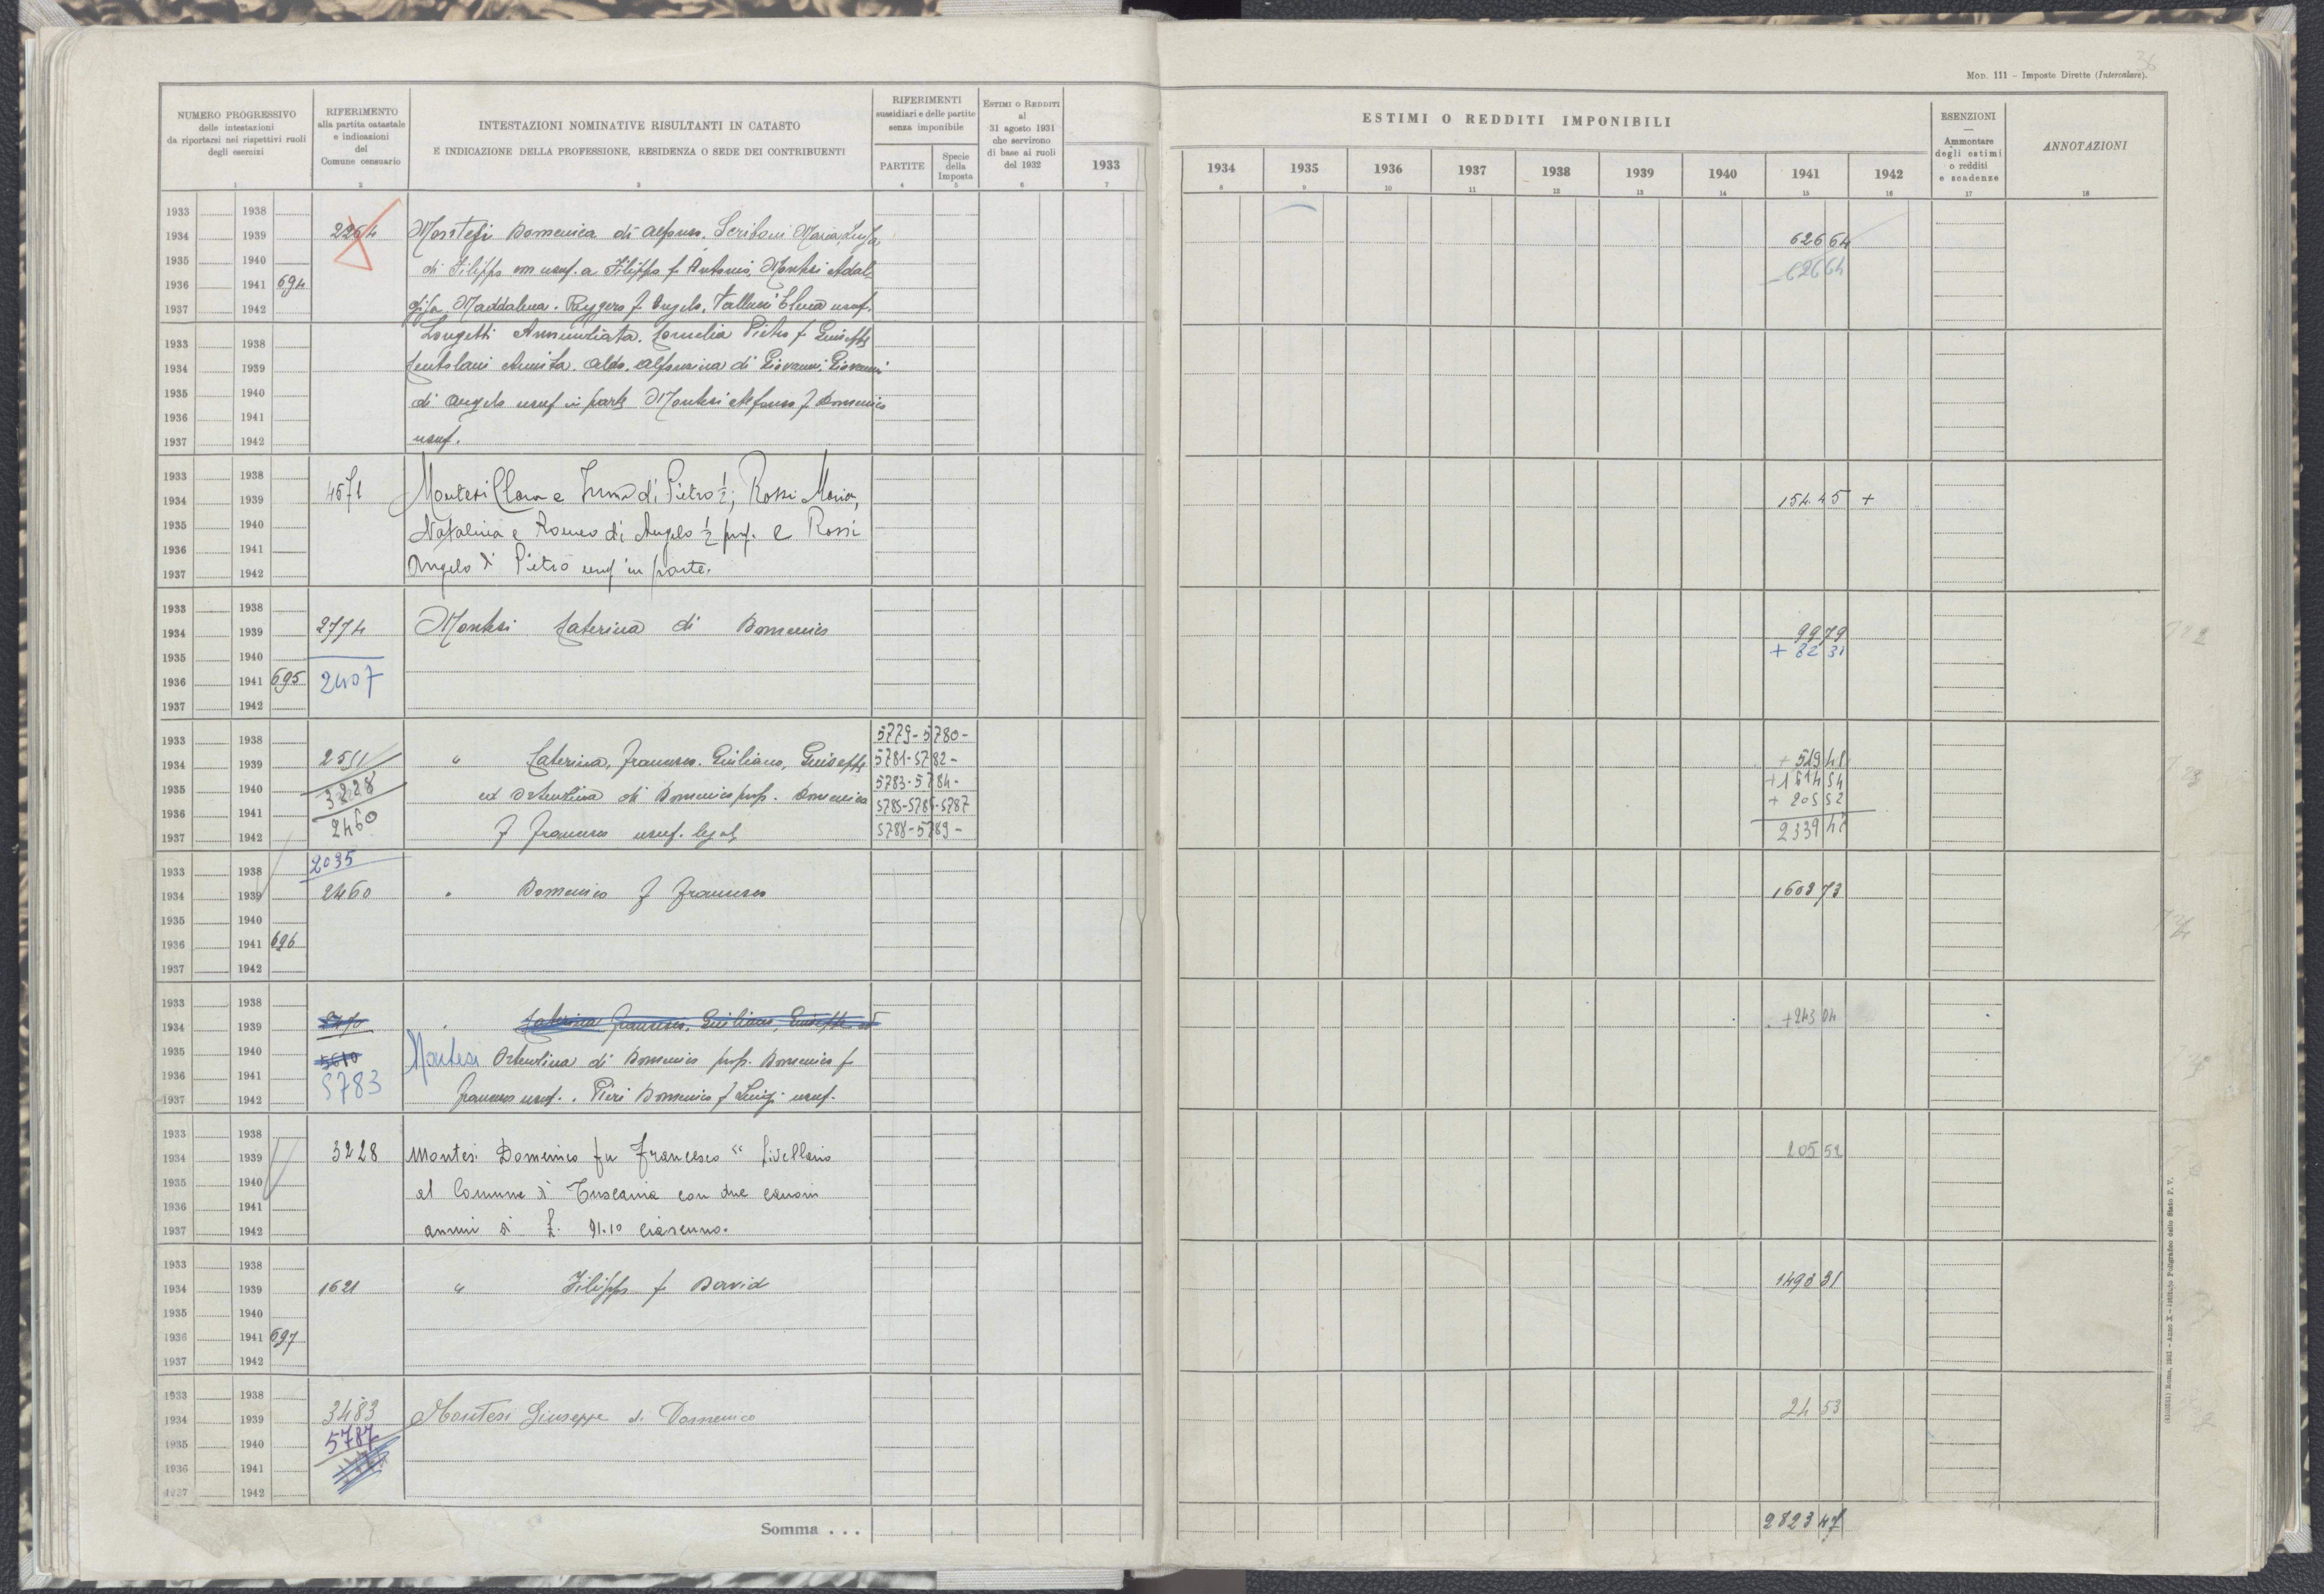 36
MOD. 111 - Imposte Dirette (Intercalare).
NUMERO PROGRESSIVO
delle intestazioni
da riportarsi nei rispettivi ruoli
degli esercizi
1
RIFERIMENTO
alla partita catastale
e indicazioni
del
Comune censuario
2
INTESTAZIONI NOMINATIVE RISULTANTI IN CATASTO
E INDICAZIONE DELLA PROFESSIONE, RESIDENZA O SEDE DEI CONTRIBUENTI
3
RIFERIMENTI
sussidiari e delle partite
senza imponibile
PARTITE
4
Specie
della
Imposta
5
ESTIMI O REDDITI
al
31 agosto 1931
che servirono
di base ai ruoli
del 1932
6
ESTIMI O REDDITI IMPONIBILI
1933 1934 1935 1936 1937 1938 1939 1940 1941 1942
7 8 9 10 11 12 13 14 15 16
ESENZIONI
Ammontare
degli estimi
o redditi
e scadenze
17
ANNOTAZIONI
18
1933 1938
1934 1939 2264 Montesi Domenica di Alfonso. Scriboni Maria, Luisa 626 64
1935 1940 di Filippo usuf. a Filippo f. Antonio, Montesi Adal- 626 64
1936 1941 694
1937 1942 gisa, Maddalena. Ruggero f. Angelo, Elena usuf.
1933 1938 Annunziata. Cornelia Pietro f. Giuseppe
1934 1939 Aldo. Alfonsina di Giovanni, Giovanni
1935 1940 di Angelo usuf in parte Montesi Alfonso f. Domenico
1936 1941
1937 1942 usuf.
1933 1938
1934 1939 4571 Montesi Clara e Irma di Pietro ½; Rossi Maria, 154.45 +
1935 1940 Natalina e Romeo di Angelo ½ prop. e Rossi
1936 1941
1937 1942 Angelo di Pietro usuf in parte.
1933 1938
1934 1939 2774 Montesi Caterina di Domenico 99 79
1935 1940 + 82 31
1936 1941 695 2407
1937 1942
1933 1938 5779-5780-
1934 1939 2511 " Caterina, Francesco. Giuliano, Giuseppe 5781-5782- + 519 48
1935 1940 3228 ed Ortenzina di Domenico prop. Domenico 5783-5784- + 1614 54
1936 1941 2460 5785-5786-5787 + 205 52
1937 1942 f Francesco usuf. legale 5788-5789- 2339 42
1933 1938 2035
1934 1939 2460 " Domenico f Francesco 1603 73
1935 1940
1936 1941 696
1937 1942
1933 1938
1934 1939 " Caterina Francesco, Giuliano, Giuseppe ed + 243 04
1935 1940 5610 Montesi Ortenzina di Domenico prop. Domenico f
1936 1941 5783
1937 1942 Francesco usuf. Pieri Domenico f Luigi usuf.
1933 1938
1934 1939 3228 Montesi Domenico fu Francesco " Livellario 205 52
1935 1940 al Comune di Tuscania con due canoni
1936 1941
1937 1942 annui di £. 91.10 ciascuno.
1933 1938
1934 1939 1621 " Filippo f David 1490 31
1935 1940
1936 1941 697
1937 1942
1933 1938
1934 1939 3483 Montesi Giuseppe di Domenico 24 53
1935 1940 5787
1936 1941
1937 1942
Somma . . . 2823 47
Roma, 1931 - Anno X - Istituto Poligrafico dello Stato P. V.